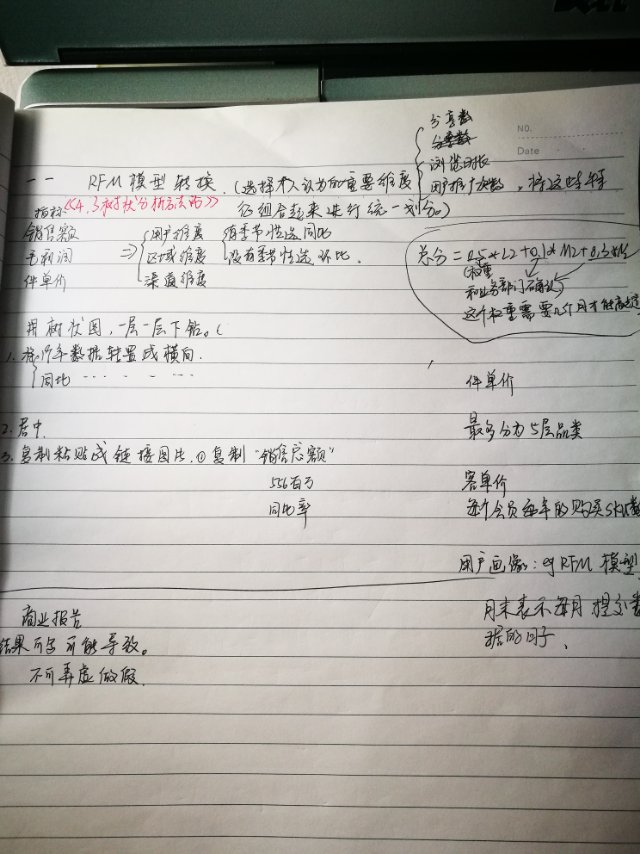 分享数
NO.
Date
浏览时长
一一 RFM模型转换.(选择个人认为的重要维度 用户推广次数,将这些特
征组合起来进行统一划分。)
指标:《4.3树状分析方法而》
销售额 用户维度 有季节性选同比
毛利润 ⇒ 区域维度 没有季节性选环比.
件单价 渠道维度
总分=0.5*L2+0.1*M2+0.3*
权重
和业务部门确认
这个权重需要几个月才能
用树状图,一层一层下钻。(
1.将19年数据转置成横向.
同比 ‥ ‥ ‥ ‥
件单价
2.居中
最多分为5层品类
3.复制粘贴成链接图片.①复制“销售总额”
556百万
客单价
同比率
每个会员每年的购买SKU数
用户画像:eg RFM模型
月末表示每月提交数
据的日子、
商业报告
结果可字可能导致。
不可弄虚做假.